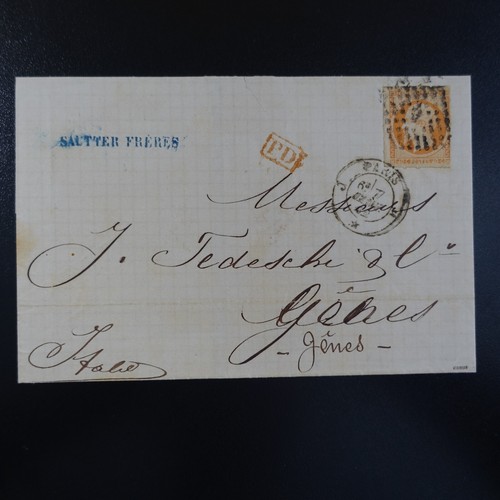 SAUTTER FRÈRES
PD
PARIS
Messieurs
J. Tedeschi & Cie
Gênes
- Gênes -
Italie